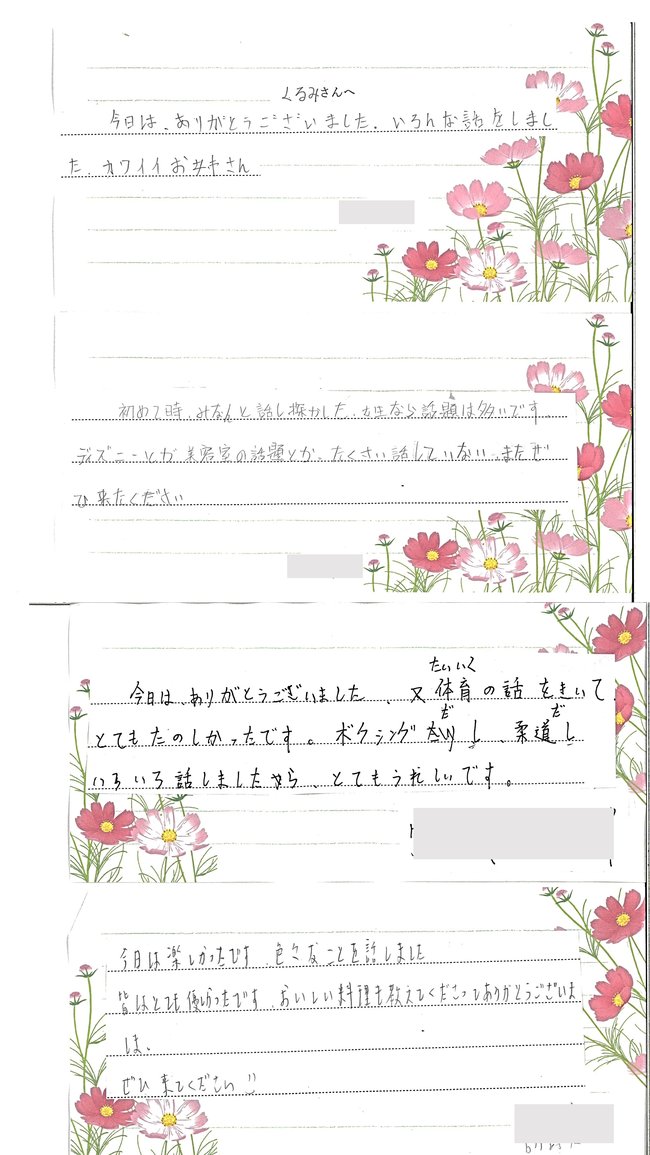 くるみさんへ
今日は、ありがとうございました、いろんな話をしまし
た、カワイイおみやさん
初めて時、みなんと話し探かした、女生なら話題は多いです。
ディズニーとか美容室の話題とか、たくさい話していない、またぜ
ひ来たください
今日は、ありがとうございました、又体育の話をきいて
たいいく
とてもたのしかったです。ボクシングだし、柔道だし
いろいろ話しましたから、とてもうれしいです。
今日は楽しかったです、色々なことを話しました
皆はとても優しかったです、おいしい料理も教えてくださってありがとうございま
は、
ぜひ来てください!!